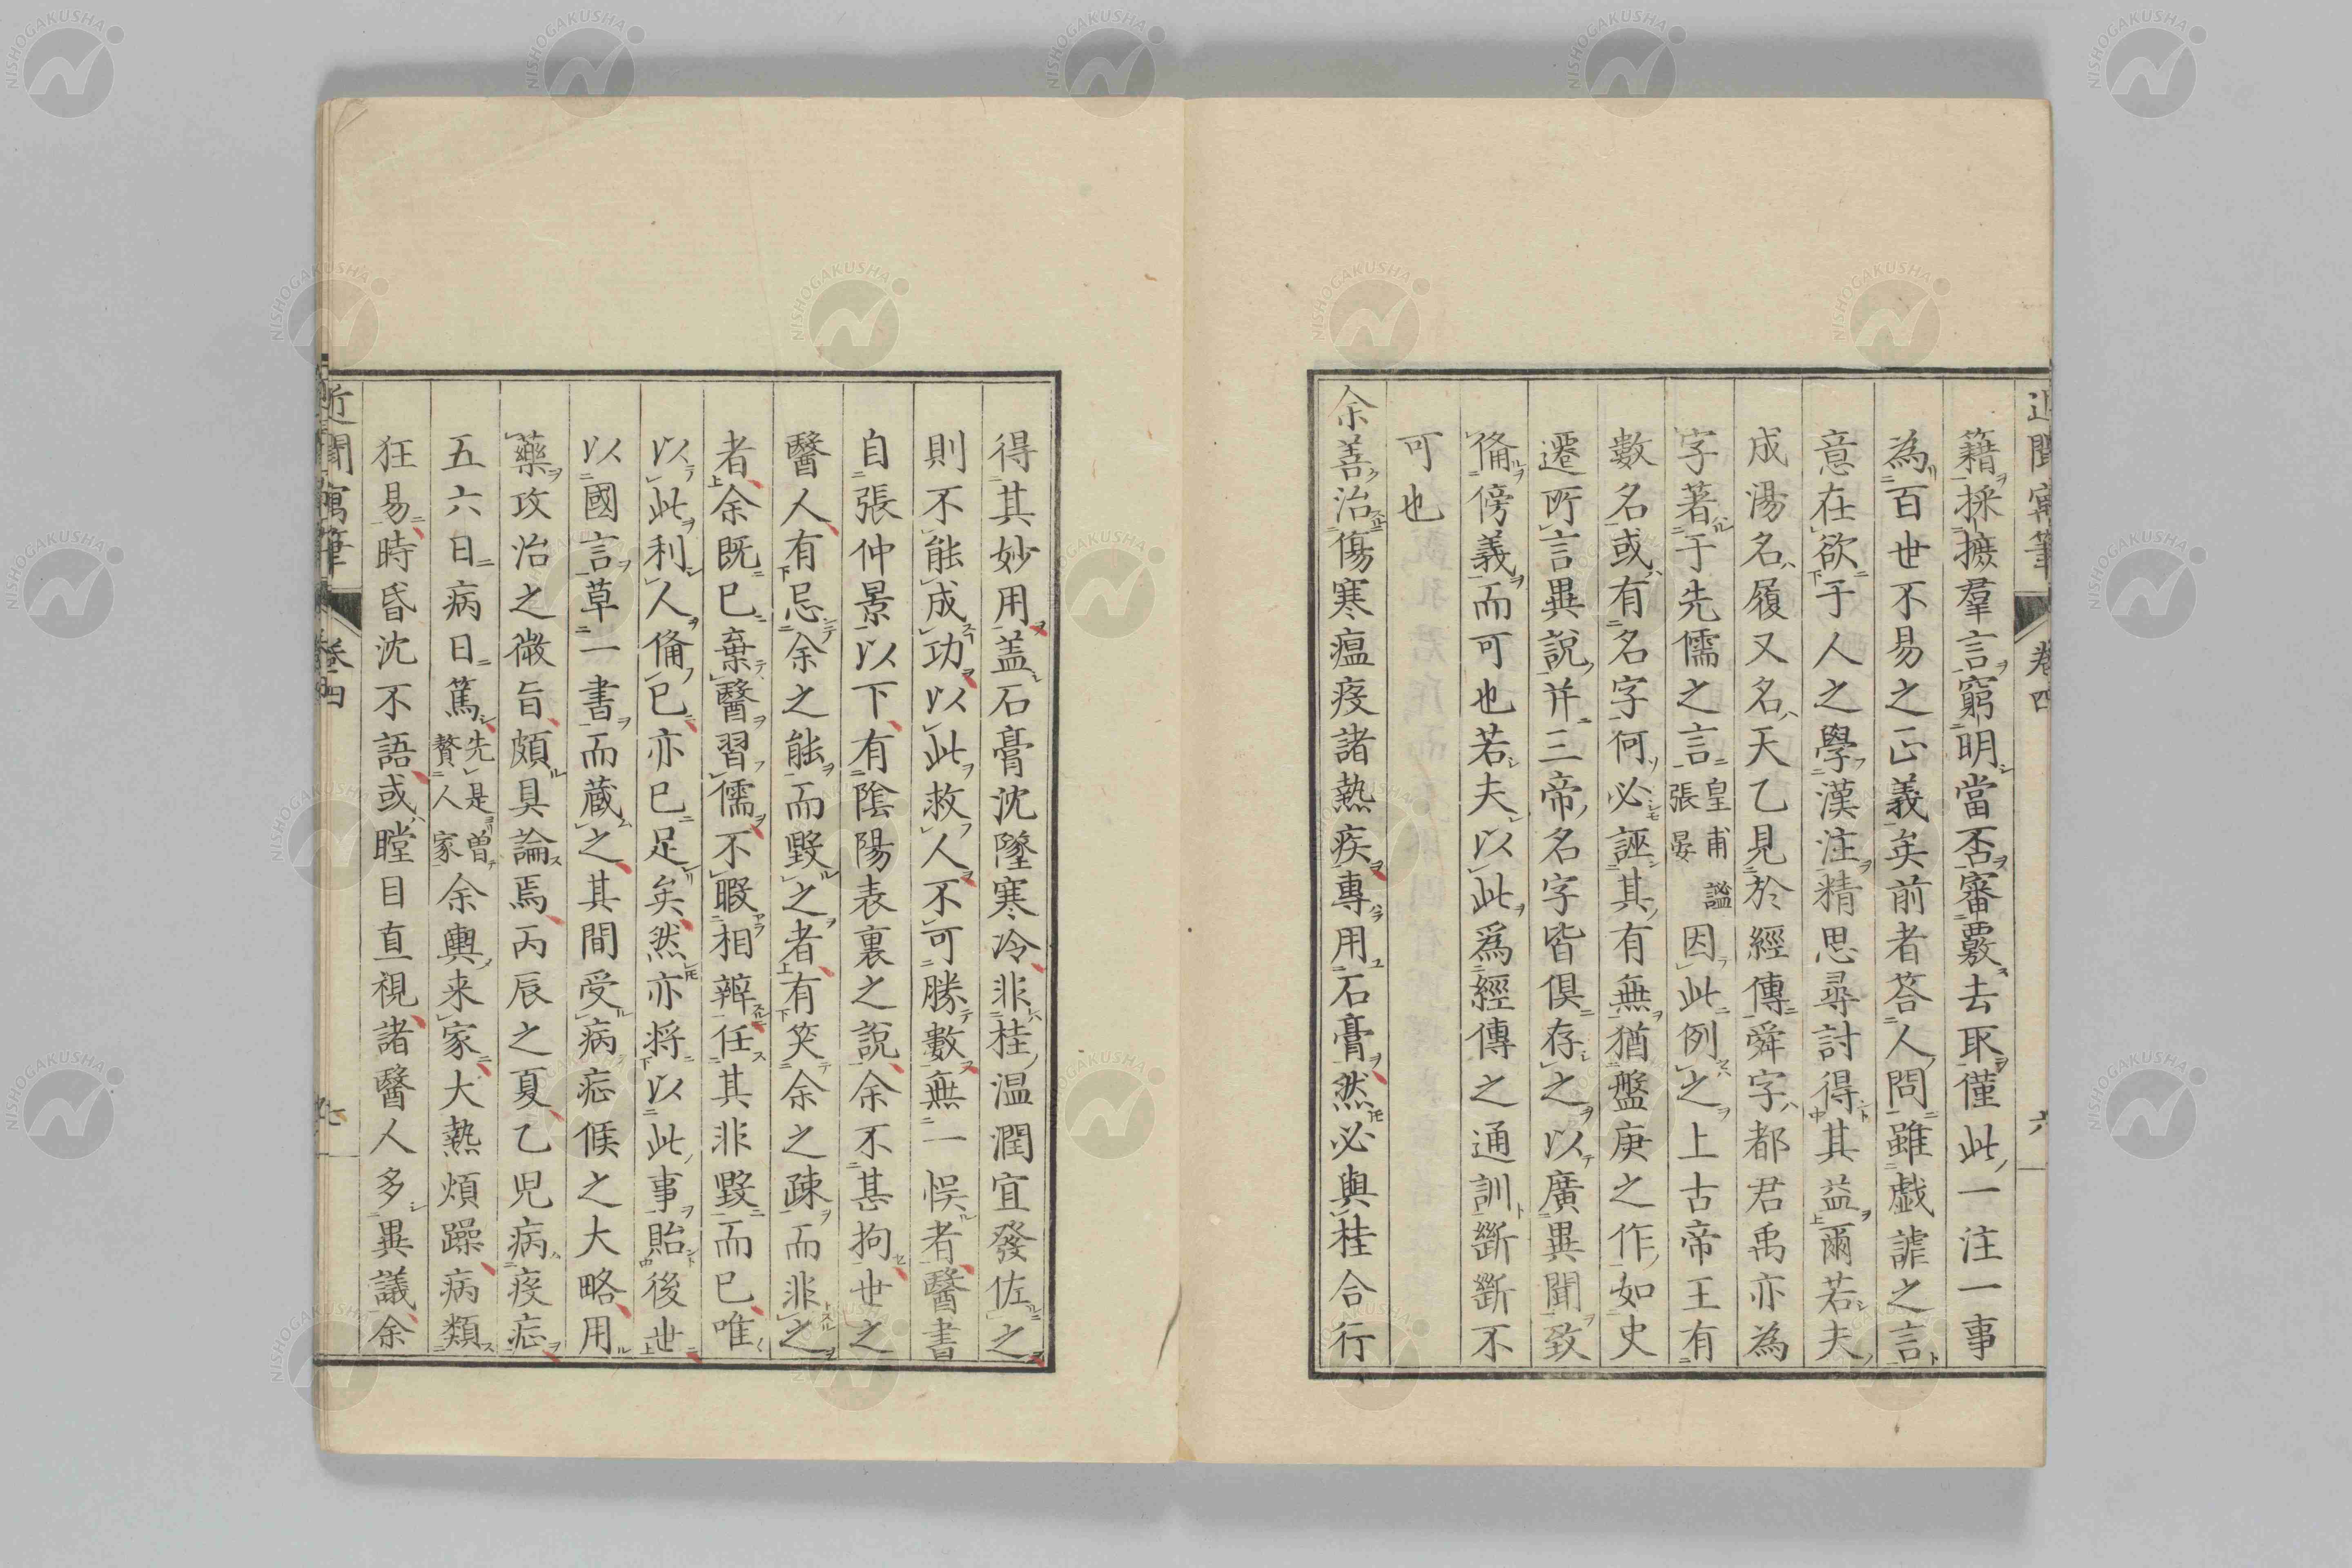 近聞寓筆 卷四 六
籍採摭羣言窮明當否審覈去取僅此一注一事
為百世不易之正義矣前者答人問雖戯謔之言
意在欲于人之學漢注精思尋討得其益爾若夫
成湯名履又名天乙見於經傳舜字都君禹亦為
字著于先儒之言皇甫謐張晏因此例之上古帝王有
數名或有名字何必誣其有無猶盤庚之作如史
遷所言異說并三帝名字皆俱存之以廣異聞致
俻傍義而可也若夫以此爲經傳之通訓斷斷不
可也
余善治傷寒瘟疫諸熱疾專用石膏然必與桂合行
得其妙用盖石膏沈墜寒冷非桂温潤宜發佐之
則不能成功以此救人不可勝數無一悞者醫書
自張仲景以下有陰陽表裏之說余不甚拘世之
醫人有忌余之能而毀之者有笑余之疎而非之
者余既已棄醫習儒不暇相辨任其非毀而已唯
以此利人俻已亦已足矣然亦将以此事貽後世
以國言草一書而蔵之其間受病症候之大略用
藥攻治之微旨頗具論焉丙辰之夏乙児病疫症
五六日病日篤先是曽贅人家余輿来家大熱煩躁病類
狂易時昏沈不語或瞠目直視諸醫人多異議余
近聞寓筆 卷四 七